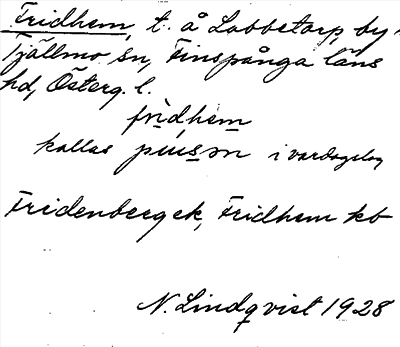 Fridhem, t. å Lobbetorp, by i
Tjällmo sn, Finspånga läns
hd, Österg. l.
fridhem
kallas i vardagslag
Fridenbergek, Fridhem kb
N. Lindqvist 1928